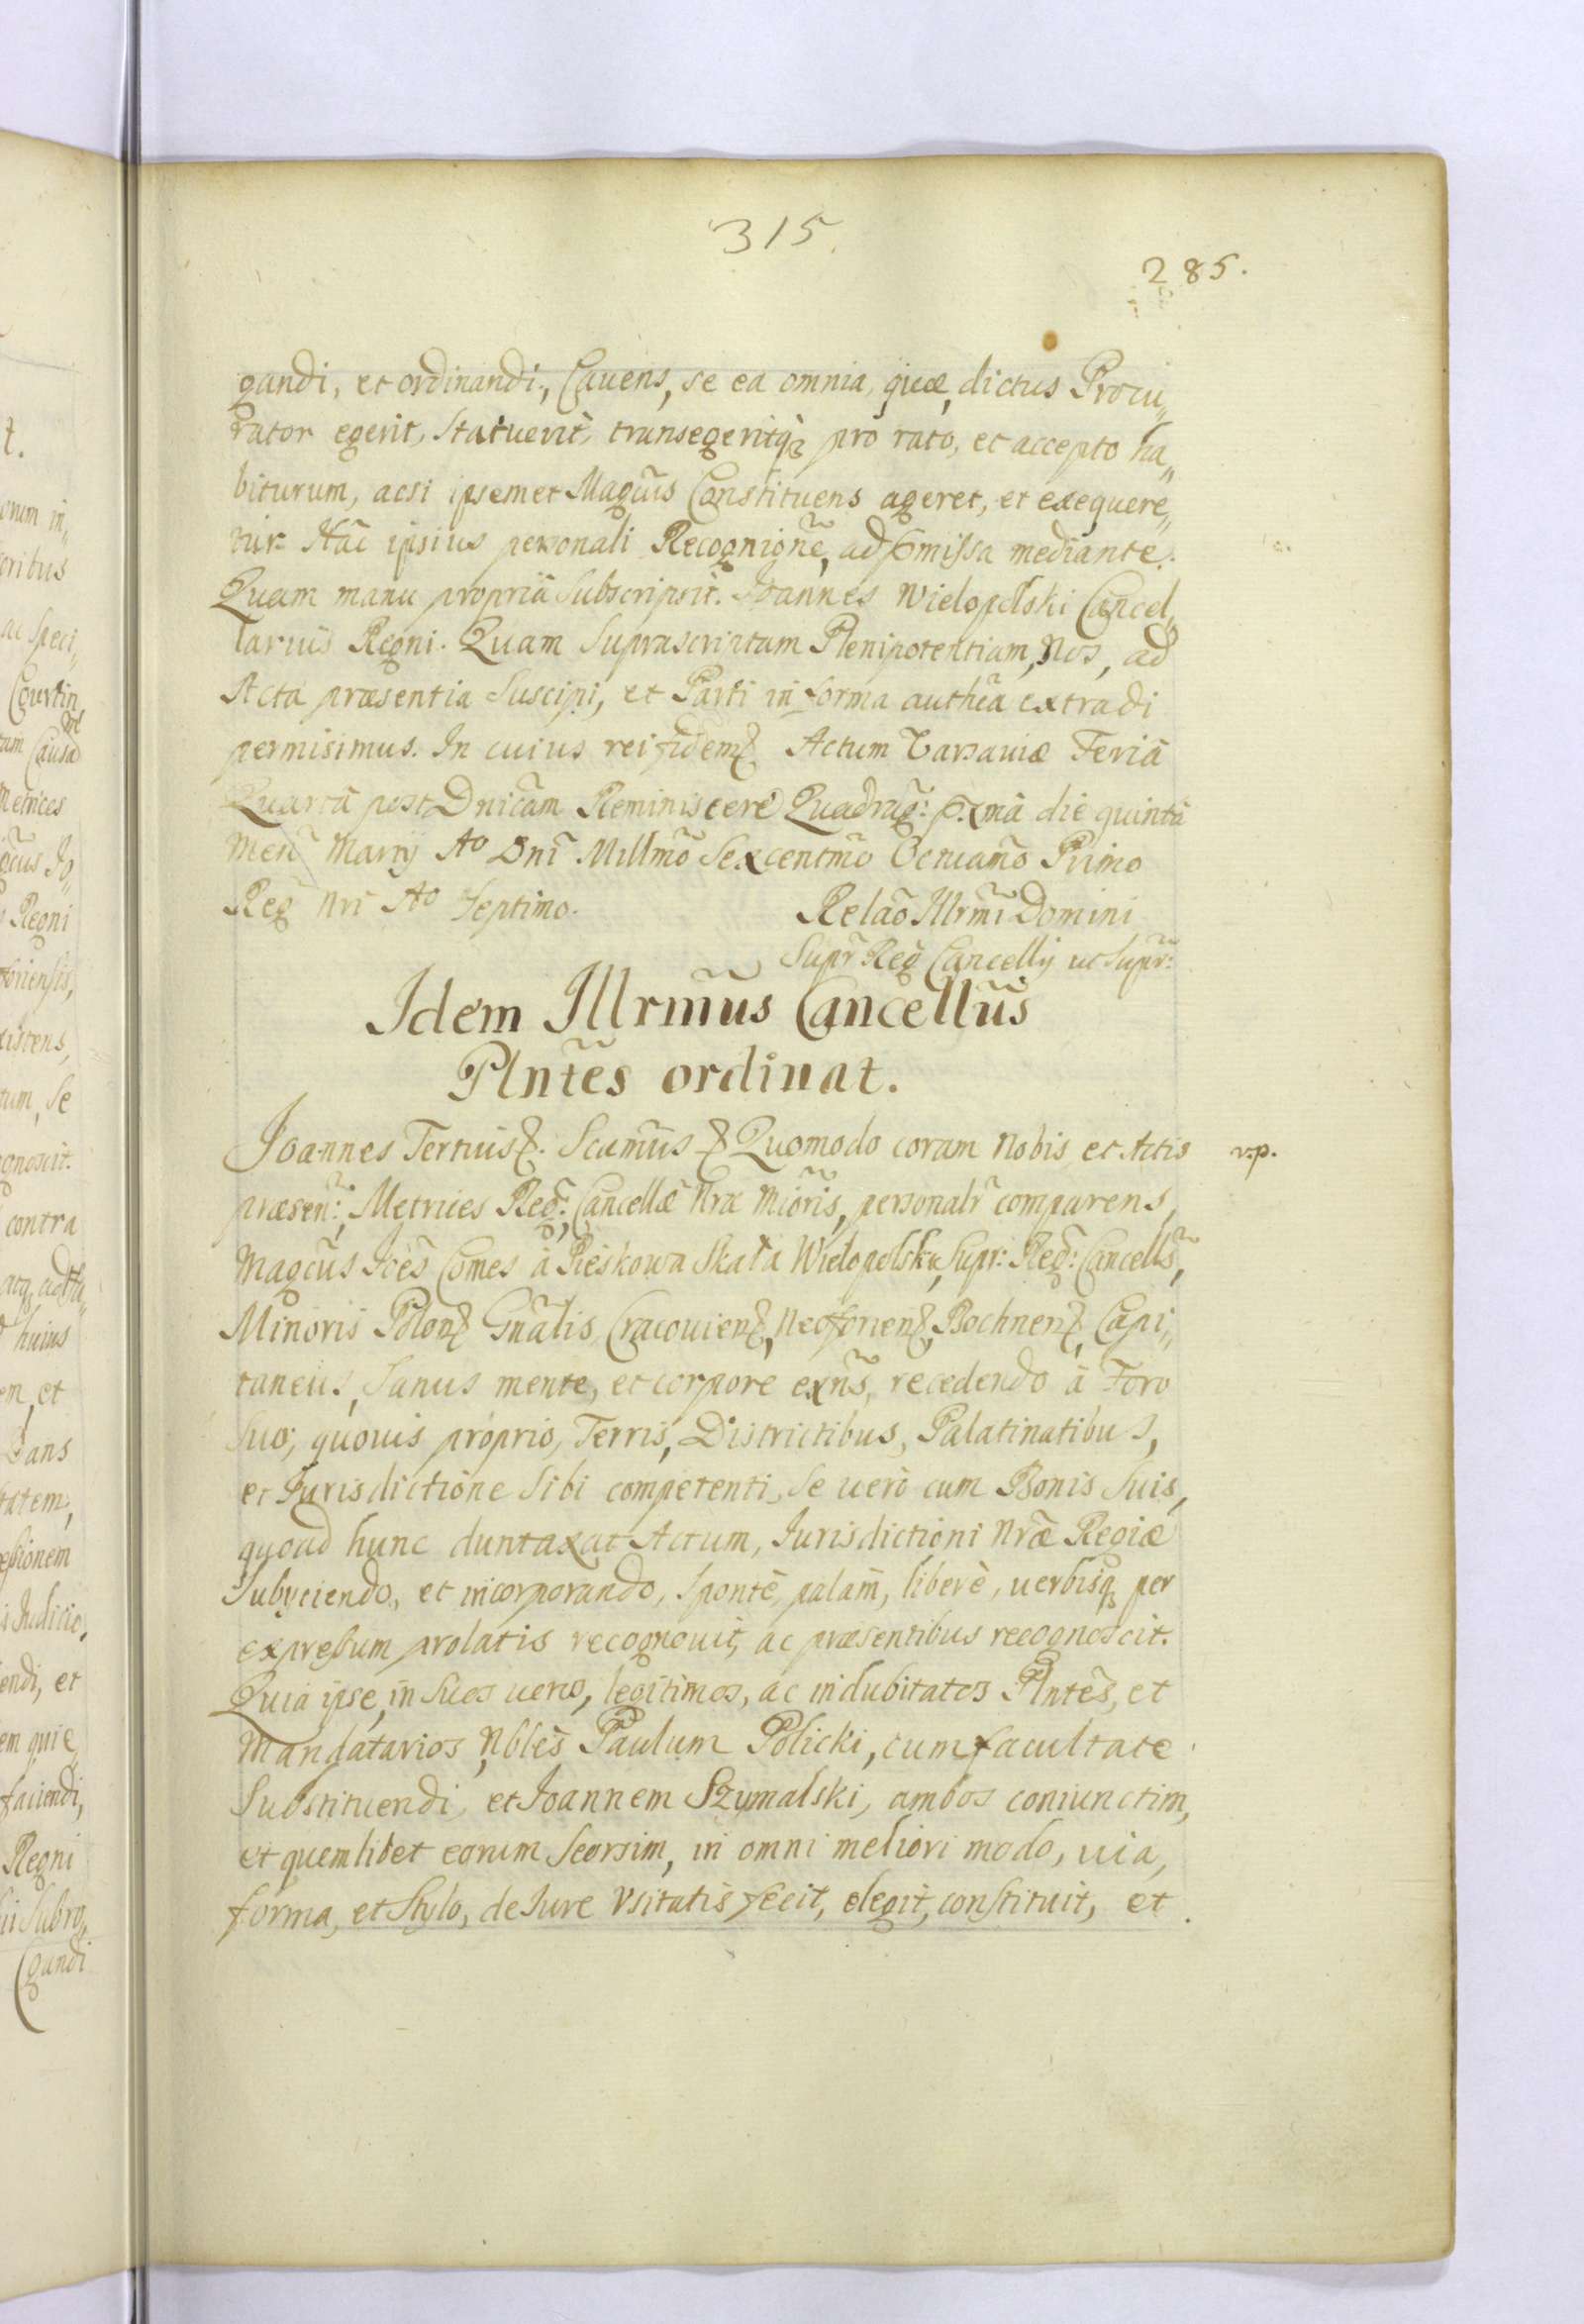 315.
285.
gandi, et ordinandi, Cauens, se ea omnia, quæ, dictus Procu„
rator egerit, Statuerit, transegeritq3 pro rato, et accepto ha„
biturum, acsi ipsemet Magcus Constituens ageret, et exequere„
tur. Hac ipsius personali Recognigñe, ad præmissa mediante.
Quam manu propriâ Subscripsit. Joannes Wielopolski Cancel„
larius Regni. Quam Suprascriptam Plenipotentiam, Nos, ad
Acta præsentia Suscipi, et Parti in forma authca extradi
permisimus. In cuius rei fidem Actum Varsauiæ Feriâ
Quartâ post Dnicam Reminiscere Quadrag: die quintâ
Men̄ Martij Ao Dnĩ Millm̃o Sexcentm̃o Octuam̃o Primo
Reg Nri Ao Septimo.
Relão Illrm̃i Domini
Supr̃ Reg Cancellij ut Supr̃:
Idem Illrmũs Cancellũs
Plntẽs ordinat.
Joannes Tertius. Scamũs Quomodo coram Nobis et Actis
v.p.
præsen: Metrices Reg: Cancellæ Nræ Miõris, personalr̃ comparens,
Magcũs Joẽs Comes à Pieskowa Skała Wielopolski, Supr: Reg: Cancells̃,
Minoris Polon Gnãlis, Cracouien, Neoforien, Bochnen, Capi„
taneus, Sanus mente, et corpore exñs, recedendo à Foro
Suo, quouis proprio, Terris, Districtibus, Palatinatibus,
et Jurisdictione Sibi competenti, Se uerò cum Bonis Suis,
quoad hunc duntaxat Actum, Iurisdictioni Nrãe Regiæ
Subijciendo, et incorporando, Spontè, palam, liberè, uerbisq3 per
expressum prolatis recognouit, ac præsentibus recognoscit.
Quia ipse, in Suos ueros, legitimos, ac indubitatos Plntẽs, et
Mandatarios, Nblẽs Paulum Policki, cum facultate
Substituendi, et Joannem Szymalski, ambos coniunctim,
et quemlibet eorum Seorsim, in omni meliori modo, uia,
forma, et Stylo, de Iure Vsitatis fecit, elegit, constituit, et